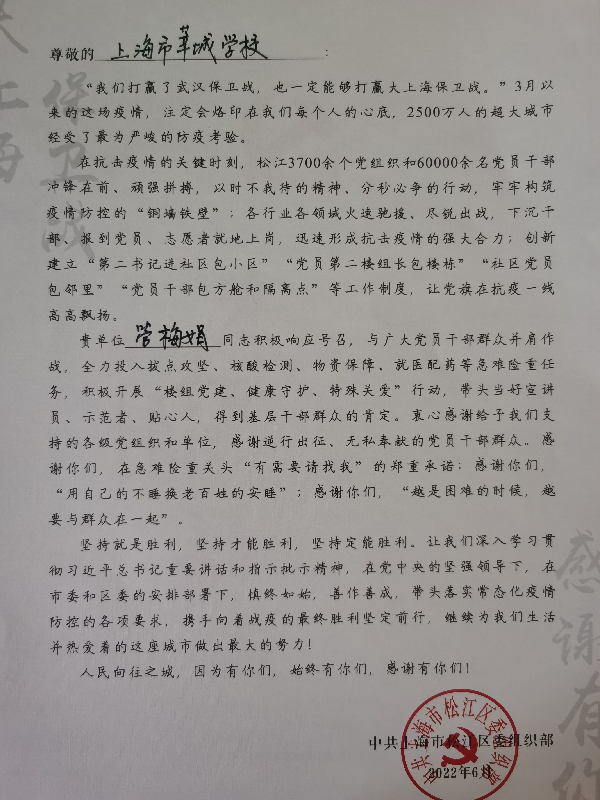 尊敬的 上海市莘城学校 ：
“我们打赢了武汉保卫战，也一定能够打赢大上海保卫战。”3月以
来的这场疫情，注定会烙印在我们每个人的心底，2500万人的超大城市
经受了最为严峻的防疫考验。
在抗击疫情的关键时刻，松江3700余个党组织和60000余名党员干部
冲锋在前、顽强拼搏，以时不我待的精神、分秒必争的行动，牢牢构筑
疫情防控的“铜墙铁壁”；各行业各领域火速驰援、尽锐出战，下沉干
部、报到党员、志愿者就地上岗，迅速形成抗击疫情的强大合力；创新
建立“第二书记进社区包小区”“党员第二楼组长包楼栋”“社区党员
包邻里”“党员干部包方舱和隔离点”等工作制度，让党旗在抗疫一线
高高飘扬。
贵单位 管梅娟 同志积极响应号召，与广大党员干部群众并肩作
战，全力投入拔点攻坚、核酸检测、物资保障、就医配药等急难险重任
务，积极开展“楼组党建、健康守护、特殊关爱”行动，带头当好宣讲
员、示范者、贴心人，得到基层干部群众的肯定。衷心感谢给予我们支
持的各级党组织和单位，感谢逆行出征、无私奉献的党员干部群众。感
谢你们，在急难险重关头“有需要请找我”的郑重承诺；感谢你们，
“用自己的不睡换老百姓的安睡”；感谢你们，“越是困难的时候，越
要与群众在一起”。
坚持就是胜利，坚持才能胜利，坚持定能胜利。让我们深入学习贯
彻习近平总书记重要讲话和指示批示精神，在党中央的坚强领导下，在
市委和区委的安排部署下，慎终如始，善作善成，带头落实常态化疫情
防控的各项要求，携手向着战疫的最终胜利坚定前行，继续为我们生活
并热爱着的这座城市做出最大的努力！
人民向往之城，因为有你们，始终有你们，感谢有你们！
中共上海市松江区委组织部
2022年6月
中共上海市松江区委组织部
大上海
保卫战
感谢有你